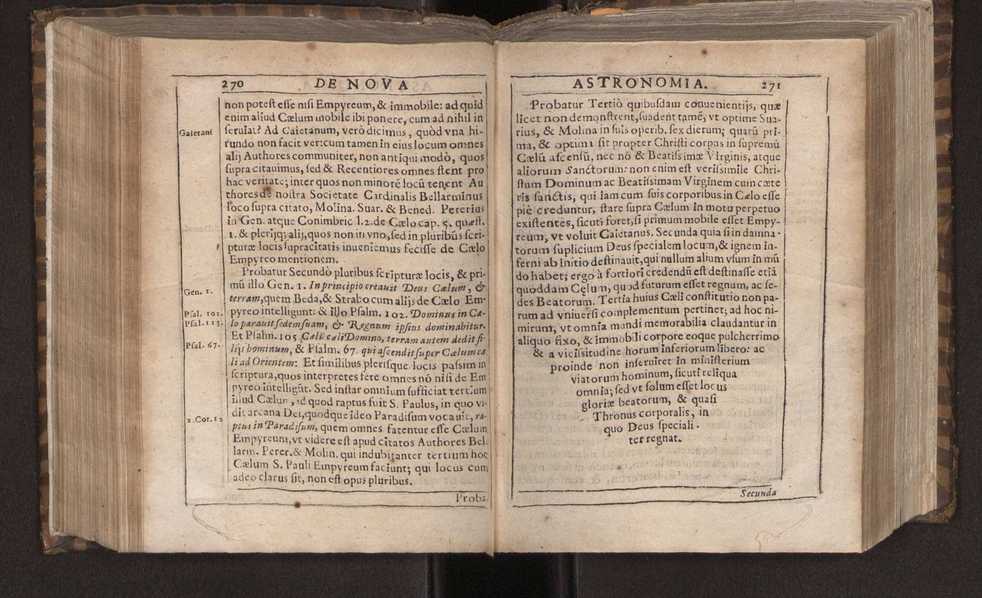 270 DE NOVA
non potest esse nisi Empyreum, & immobile: ad quid
enim aliud Cælum mobile ibi ponere, cum ad nihil in
seruiat? Ad Caietanum, verò dicimus, quòd vna hi-
Gaietani
rundo non facit ver: cum tamen in eius locum omnes
alij Authores communiter, non antiqui modò, quos
supra citauimus, sed & Recentiores omnes stent pro
hac veritate; inter quos non minorē locū tenent Au
thores de nostra Societate Cardinalis Bellarminus
loco supra citato, Molina. Suar. & Bened. Pererius
in Gen. atque Conimbric. l. 2. de Cælo cap. 5. quæst.
1. & plerìq; alij, quos non in vno, sed in pluribus scri-
pturæ locis supracitatis inuenimus fecisse de Cælo
Empyreo mentionem.
Probatur Secundò pluribus scripturæ locis, & pri-
mū illo Gen. 1. In principio creauit Deus Cælum, &
Gen. 1.
terram, quem Beda, & Strabo cum alijs de Cælo Em-
pyreo intelligunt: & illo Psalm. 102. Dominus in Cæ-
Psal. 102.
lo parauit sedem suam, & Regnum ipsius dominabitur.
Psal. 113.
Et Psalm. 105 Cælū cæli Domino, terram autem dedit fi-
lijs hominum, & Psalm. 67. qui ascendit super Cælum cæ
Psal. 67.
li ad Orientem: Et similibus plerisque locis passim in
scriptura, quos interpretes fere omnes nō nisi de Em
pyreo intelligūt. Sed instar omnium sufficiat tertium
illud Cælum, ad quod raptus fuit S. Paulus, in quo vi-
dit arcana Dei, quodque ideo Paradisum vocauit, ra-
2. Cor. 12
ptus in Paradisum, quem omnes fatentur esse Cælum
Empyreum, vt videre est apud citatos Authores Bel
larm. Perer. & Molin. qui indubitanter tertium hoc
Cælum S. Pauli Empyreum faciunt; qui locus cum
adeo clarus sit, non est opus pluribus.
Proba
ASTRONOMIA. 271
Probatur Tertiò quibusdam conuenientijs, quæ
licet non demonstrent, suadent tamē; vt optime Sua-
rius, & Molina in suis operib. sex dierum; quarū pri-
ma, & optima sit propter Christi corpus in supremū
Cælū ascensū, nec nō & Beatissimæ Virginis, atque
aliorum Sanctorum: non enim est verissimile Chri-
stum Dominum ac Beatissimam Virginem cum cæte
ris sanctis, qui iam cum suis corporibus in Cælo esse
piè creduntur, stare supra Cælum in motu perpetuo
existentes, sicuti foret, si primum mobile esset Empy-
reum, vt voluit Caietanus. Secunda quia si in damna-
torum suplicium Deus specialem locum, & ignem in-
ferni ab initio destinauit, qui nullum alium vsum in mū
do habet; ergo à fortiori credendū est destinasse etiā
quoddam Cęlum, quod futurum esset regnum, ac se-
des Beatorum. Tertia huius Cæli constitutio non pa-
rum ad vniuersi complementum pertinet; ad hoc ni-
mirum, vt omnia mandi memorabilia claudantur in
aliquo fixo, & immobili corpore eoque pulcherrimo
& a vicissitudine horum inferiorum libero: ac
proinde non inseruiret in ministerium
viatorum hominum, sicuti reliqua
omnia; sed vt solum esset locus
gloriæ beatorum, & quasi
Thronus corporalis, in
quo Deus speciali-
ter regnat.
Secunda